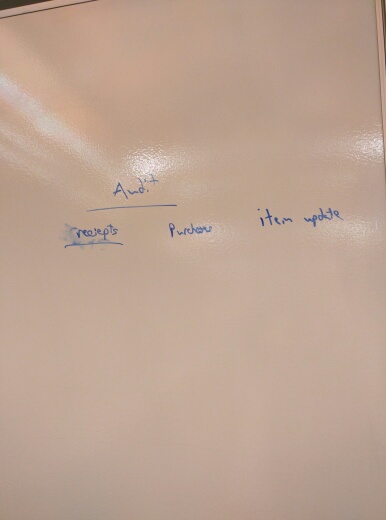 Audit
receipts Purchases item update